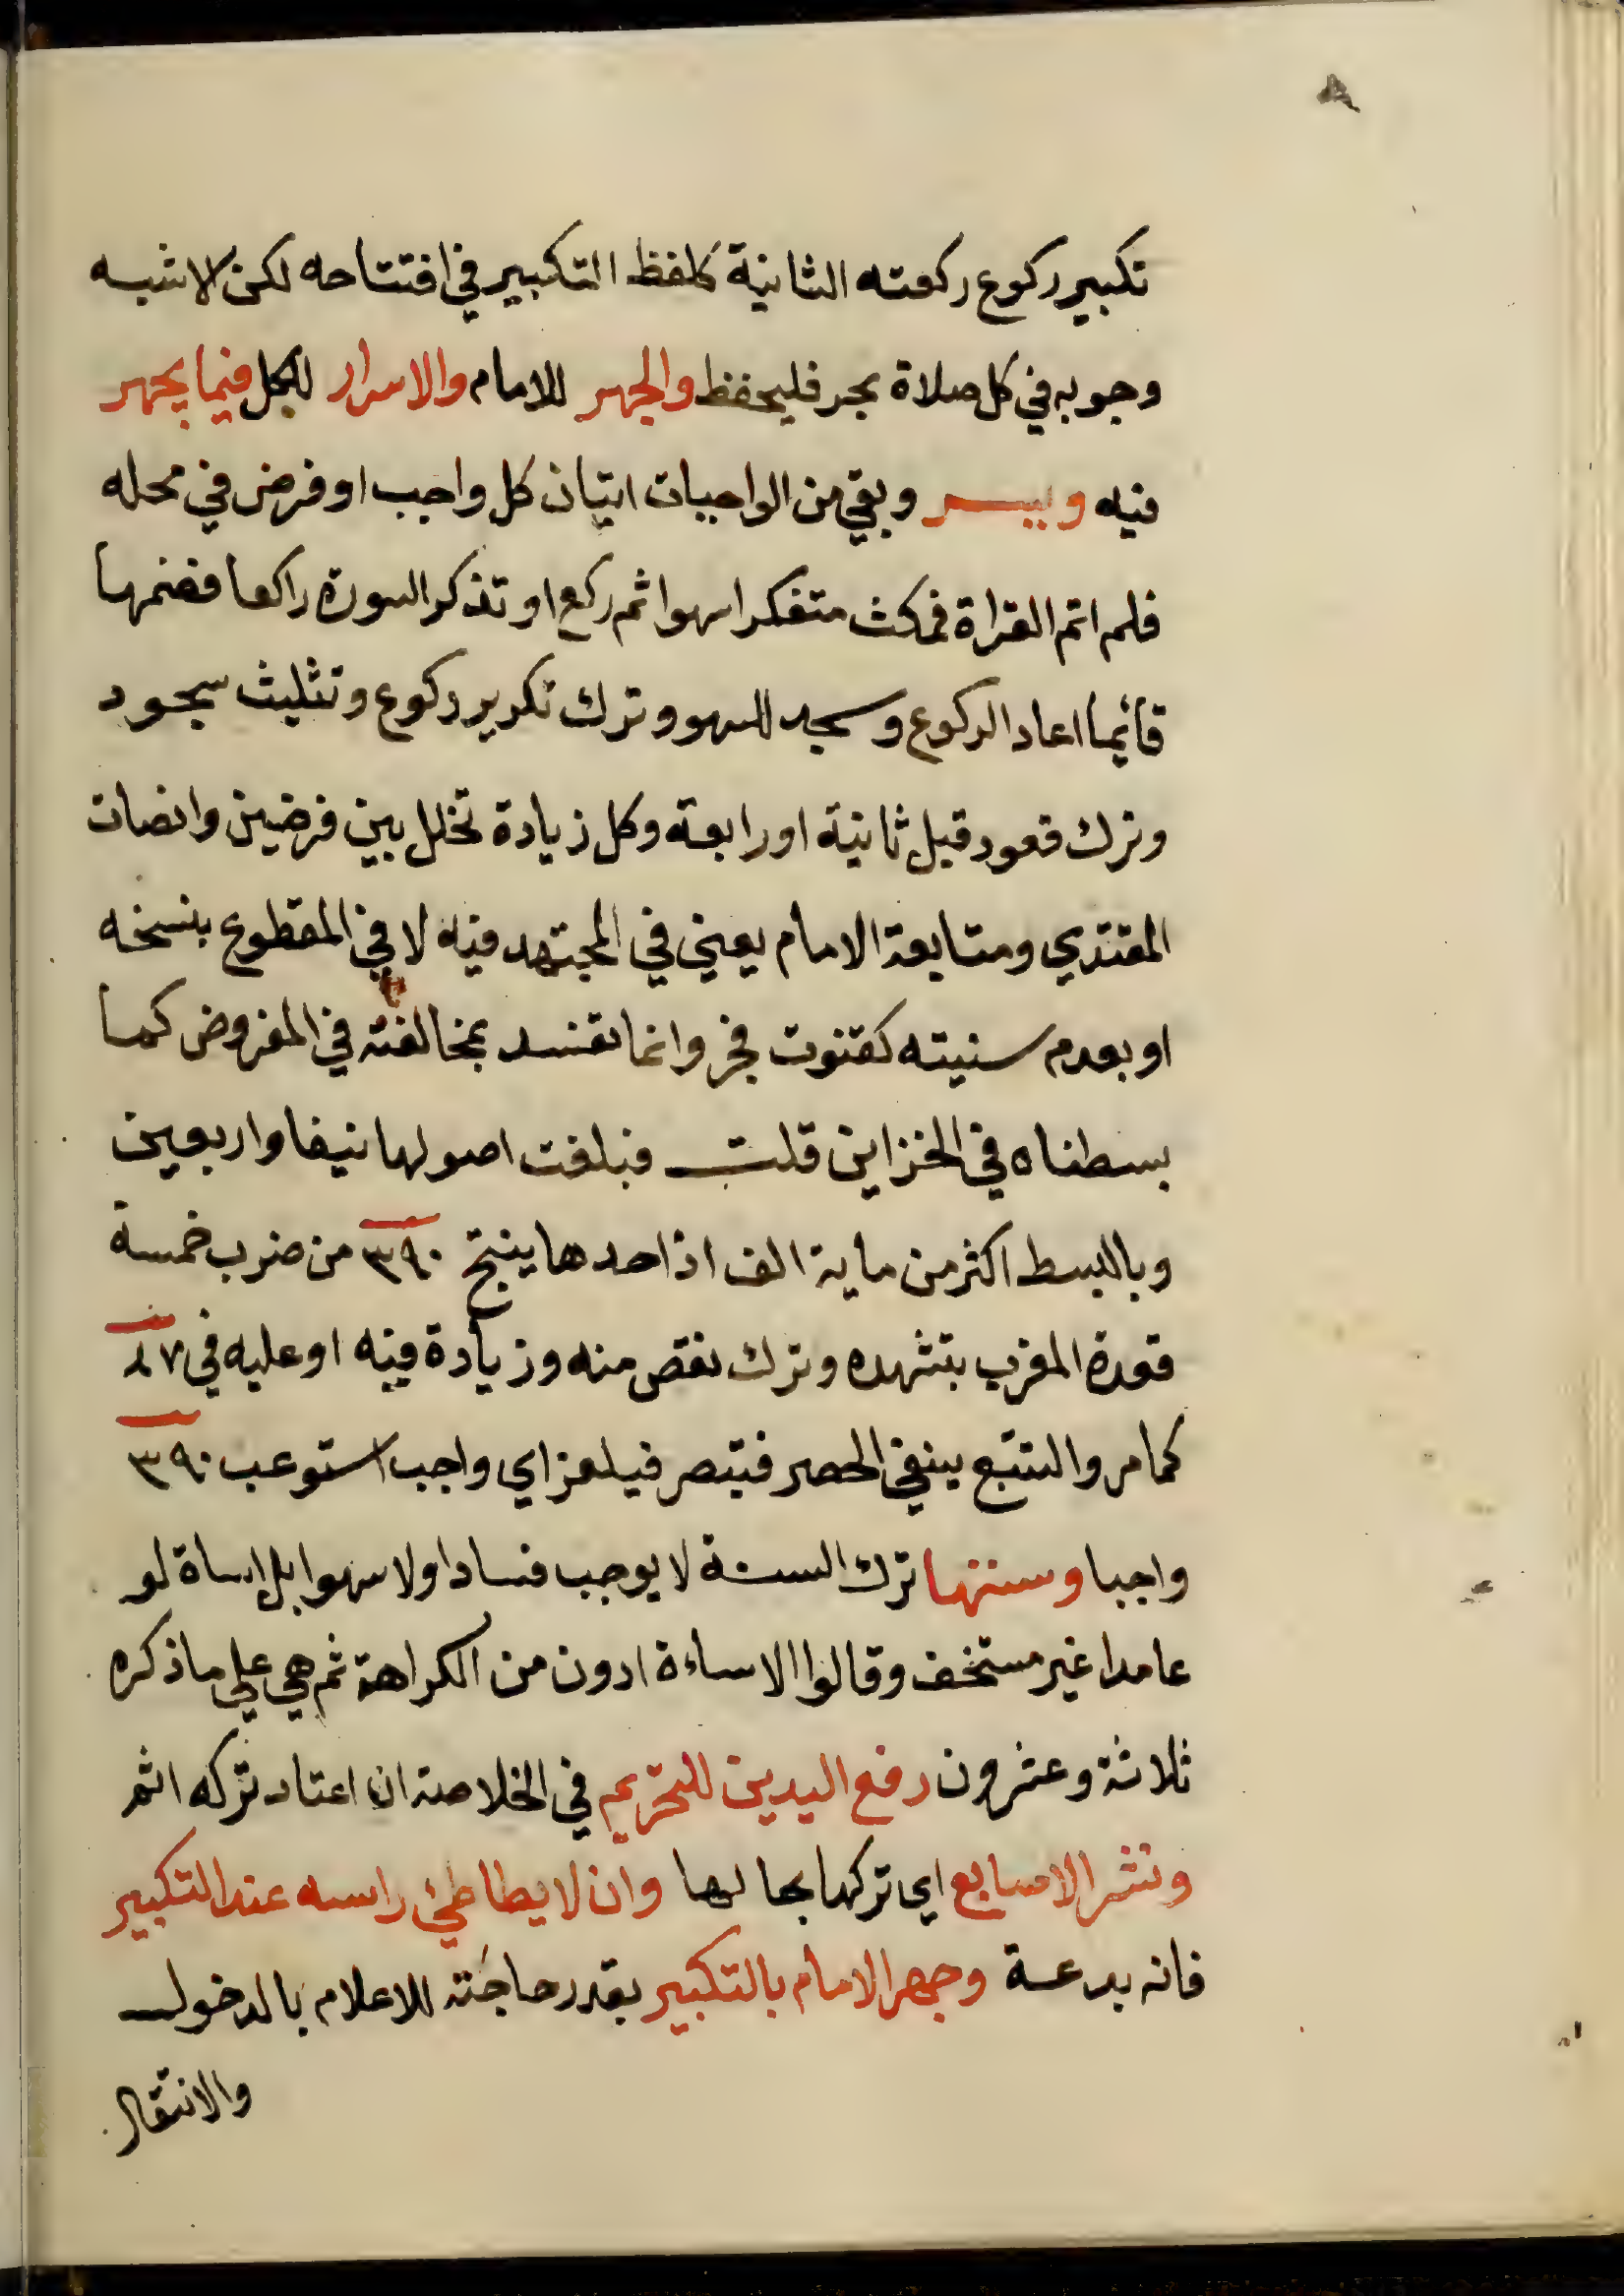 تكبير ركوع ركعته الثانية كلفظ التكبير في افتتاحه لكن الاشبه
وجوبه في كل صلاة بحر فليحفظ والجهر للامام والاسرار للكل فيما يجهر
فيه ويسر وبقي من الواجبات اتيان كل واجب او فرض في محله
فلم اتم القراة فمكث متفكرا سهوا ثم ركع او تذكر السورة راكعا فضمها
قائما اعاد الركوع وسجد للسهو وترك تكرير ركوع وتثليث سجود
وترك قعود قبل ثانية او رابعة وكل زيادة تخلل بين فرضين وانصات
المقتدي ومتابعة الامام يعني في المجتهد فيه لا في المقطوع بنسخه
او بعدم سنيته كقنوت فجر وانما تفسد بمخالفته في المفروض كما
بسطناه في الخزاين قلت فبلغت اصولها نيفا واربعين
وبالبسط اكثر من ماية الف اذ احدها ينتج ٣٩٠ من ضرب خمسة
قعدة المغرب بتشهده وترك نقص منه وزيادة فيه او عليه في ٧٨
كما مر والتتبع ينفي الحصر فتبصر فيلغز اي واجب استوعب ٣٩٠
واجبا وسننها ترك السنة لا يوجب فسادا ولا سهوا بل اساة لو
عامدا غير مستخف وقالوا الاساءة ادون من الكراهة ثم هي علي ما ذكره
ثلاثة وعشرون رفع اليدين للتحريم في الخلاصة ان اعتاد تركه اثم
ونشر الاصابع اي تركها بحالها وان لا يطاطئ راسه عند التكبير
فانه بدعة وجهر الامام بالتكبير بقدر حاجته للاعلام بالدخول
والانتقال